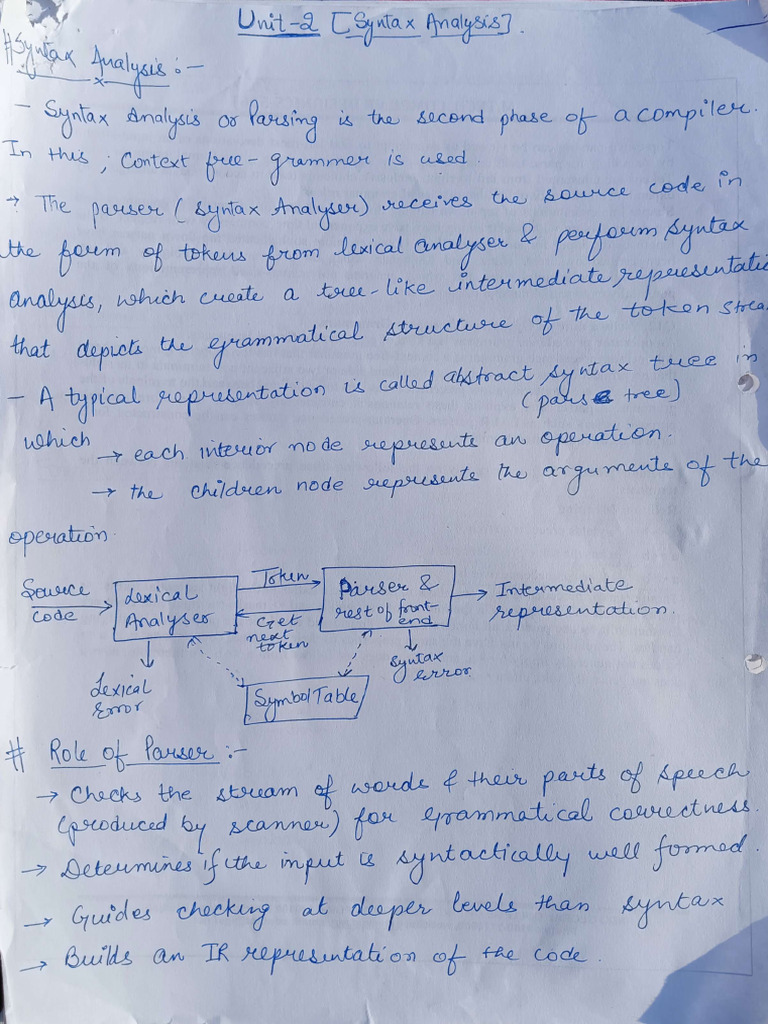 Unit-2 [Syntax Analysis].
# Syntax Analysis :-
- Syntax Analysis or Parsing is the second phase of a compiler.
In this, Context free-grammer is used.
→ The parser (syntax Analyser) receives the source code in
the form of tokens from lexical analyser & perform syntax
analysis, which create a tree-like intermediate representatio
that depicts the grammatical structure of the token strea
- A typical representation is called abstract syntax tree in
(parse tree)
which → each interior node represents an operation.
→ the children node represents the arguments of the
operation.
Source code
Lexical Analyser
Token
Get next token
Parser & rest of front-end
Intermediate representation.
Lexical Error
Symbol Table
syntax error
# Role of Parser :-
→ Checks the stream of words & their parts of speech
(produced by scanner) for grammatical correctness.
→ Determines if the input is syntactically well formed.
→ Guides checking at deeper levels than syntax
→ Builds an IR representation of the code.